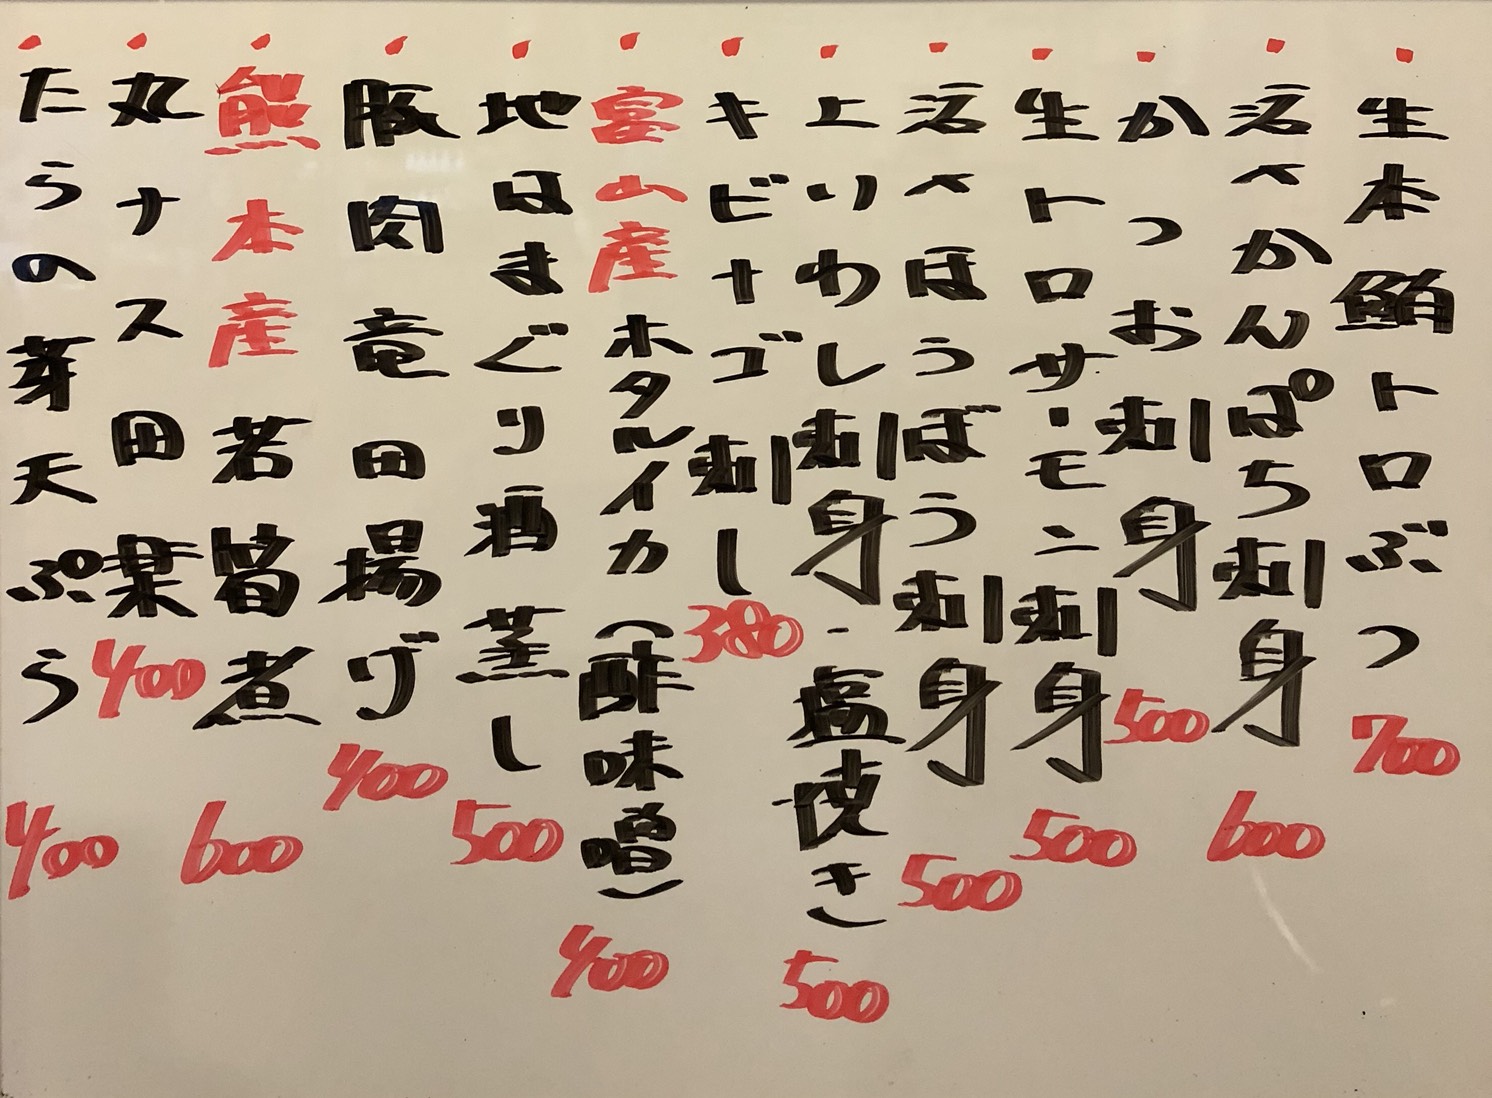 ・生本鮪トロぶつ 700
・活〆かんぱち刺身 600
・かつお刺身 500
・生トロサーモン刺身 500
・活〆ほうぼう刺身 500
・上いわし刺身・塩焼き 500
・キビナゴ刺し 380
・富山産ホタルイカ(酢味噌) 400
・地はまぐり酒蒸し 500
・豚肉竜田揚げ 400
・熊本産若筍煮 600
・丸ナス田楽 400
・たらの芽天ぷら 400